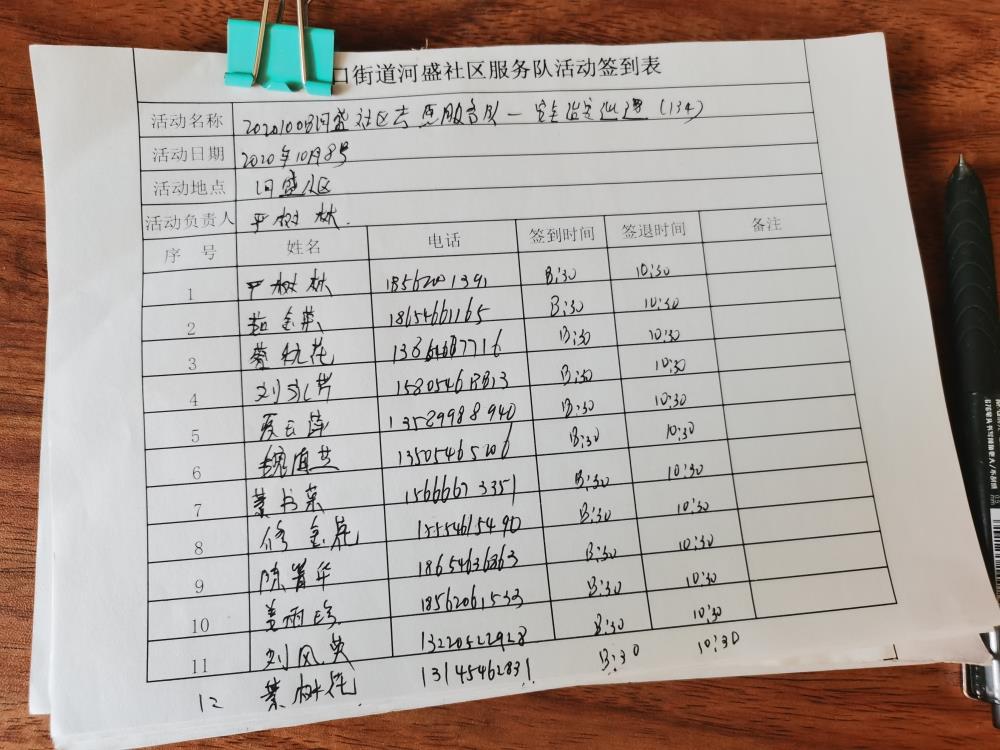 口街道河盛社区服务队活动签到表
活动名称 20201008河盛社区志愿服务队一安全治安巡逻(134)
活动日期 2020年10月8号
活动地点 河盛社区
活动负责人 平树林.
序号 姓名 电话 签到时间 签退时间 备注
1 平树林 18562001391 8:30 10:30
2 赵金英 18654661165 8:30 10:30
3 桃花 13864687716 8:30 10:30
4 刘 芳 15805468813 8:30 10:30
5 云萍 13589988940 8:30 10:30
6 魏 13505465206 8:30 10:30
7 书菜 15666673351 8:30 10:30
8 修金花 15554615490 8:30 10:30
9 陈菁华 18654636863 8:30 10:30
10 姜雨珍 18562061533 8:30 10:30
11 刘风英 13220522928 8:30 10:30
12 树花 13145462831 8:30 10:30